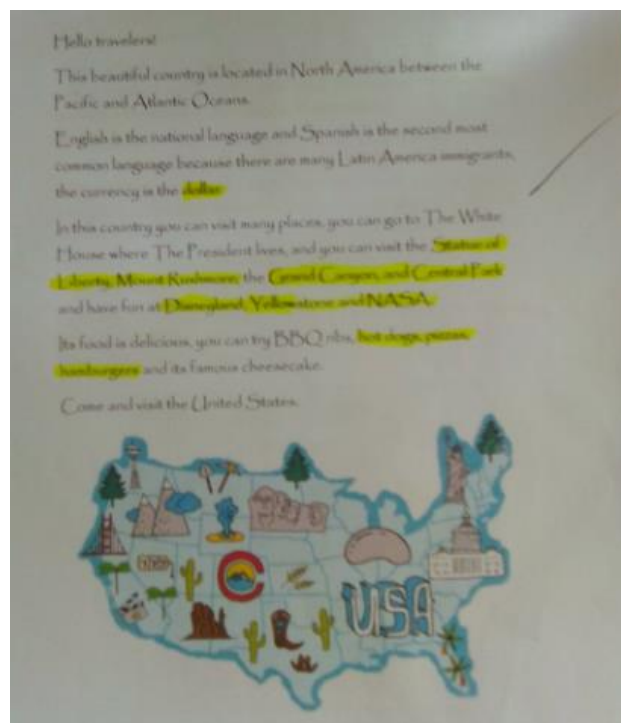 Hello travelers!
This beautiful country is located in North America between the
Pacific and Atlantic Oceans.
English is the national language and Spanish is the second most
common language because there are many Latin America immigrants,
the currency is the dollar.
In this country you can visit many places, you can go to The White
House where The President lives, and you can visit the Statue of
Liberty, Mount Rushmore, the Grand Canyon, and Central Park
and have fun at Disneyland, Yellowstone and NASA.
Its food is delicious, you can try BBQ ribs, hot dogs, pizzas,
hamburgers and its famous cheesecake.
Come and visit the United States.
C
USA